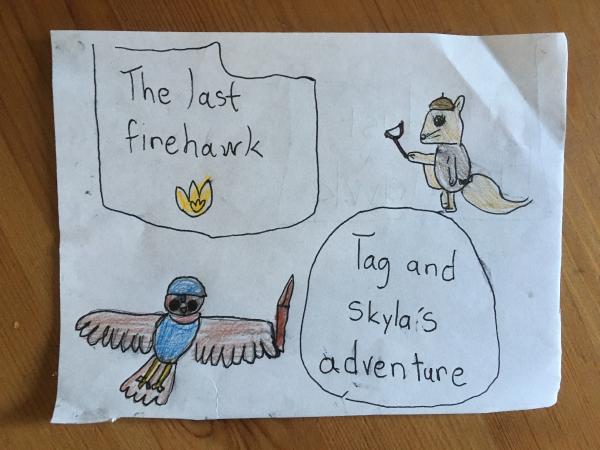 The last
firehawk
Tag and
skyla's
adventure